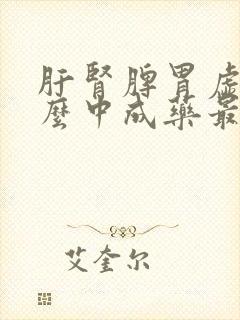 肝腎脾胃虛
麼中成藥最
艾奎尔